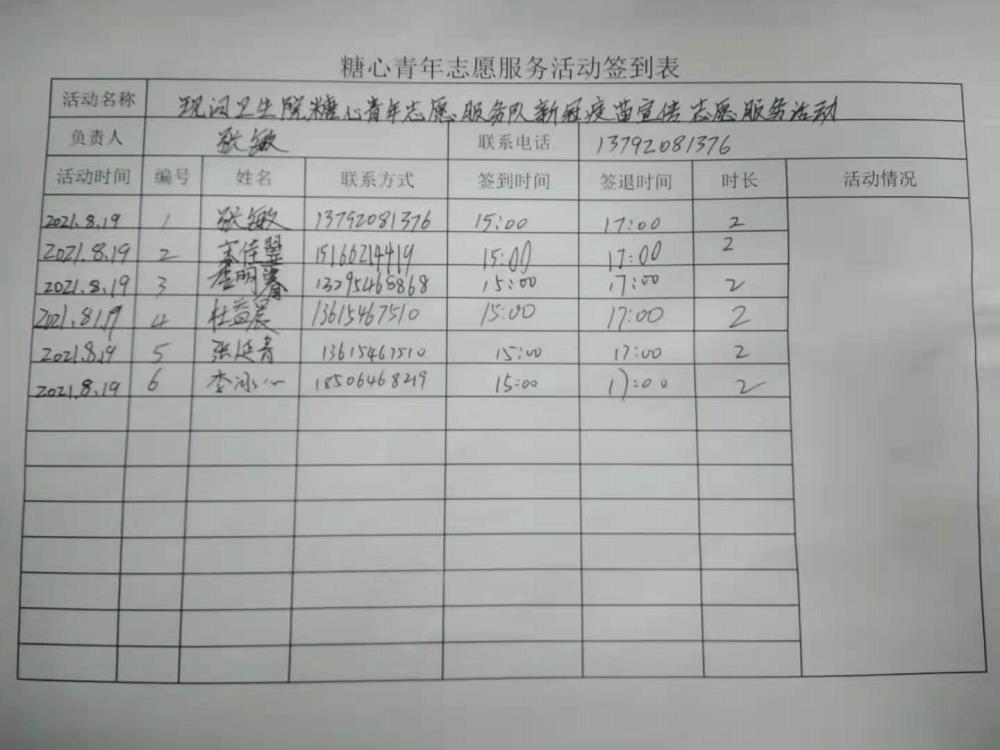 糖心青年志愿服务活动签到表
活动名称 现河卫生院糖心青年志愿服务队新冠疫苗宣传志愿服务活动
负责人 张敏 联系电话 13792081376
活动时间 编号 姓名 联系方式 签到时间 签退时间 时长 活动情况
2021.8.19 1 张敏 13792081376 15:00 17:00 2
2021.8.19 2 15166214419 15:00 17:00 2
2021.8.19 3 13295468868 15:00 17:00 2
2021.8.19 4 杜益晨 13615467510 15:00 17:00 2
2021.8.19 5 张延青 13615467510 15:00 17:00 2
2021.8.19 6 李冰心 18506468219 15:00 17:00 2